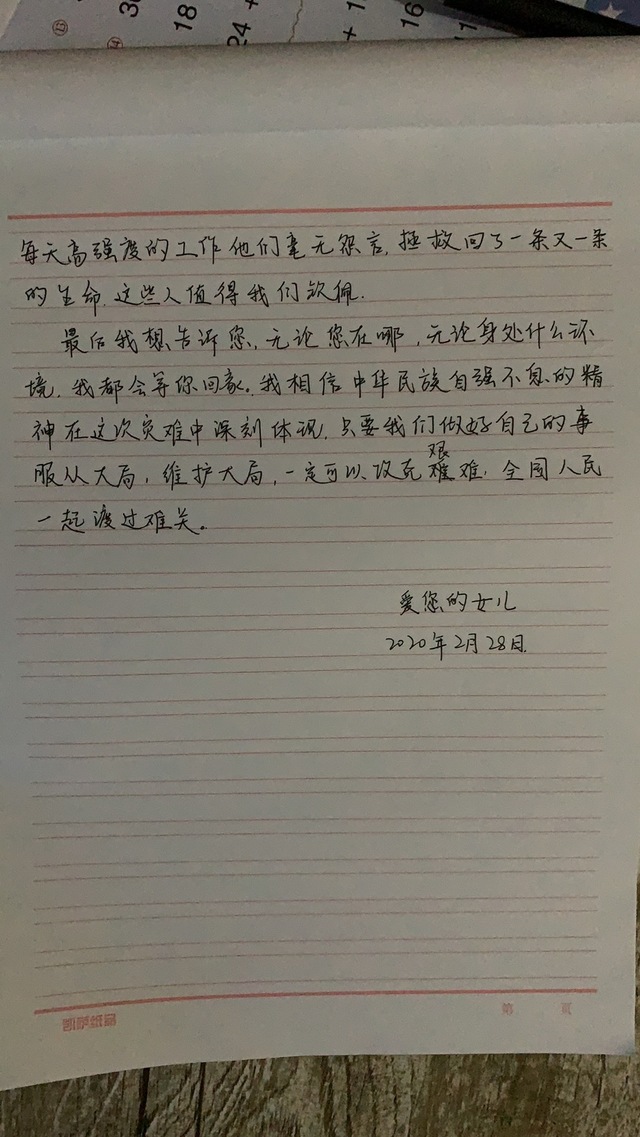 每天高强度的工作他们毫无怨言,拯救回了一条又一条
的生命.这些人值得我们钦佩.
最后我想告诉您,无论您在哪,无论身处什么环
境,我都会等你回家。我相信中华民族自强不息的精
神在这次灾难中深刻体现,只要我们做好自己的事
服从大局,维护大局,一定可以攻克艰难,全国人民
一起渡过难关。
爱您的女儿
2020年2月28日
凯萨纸品
第 页